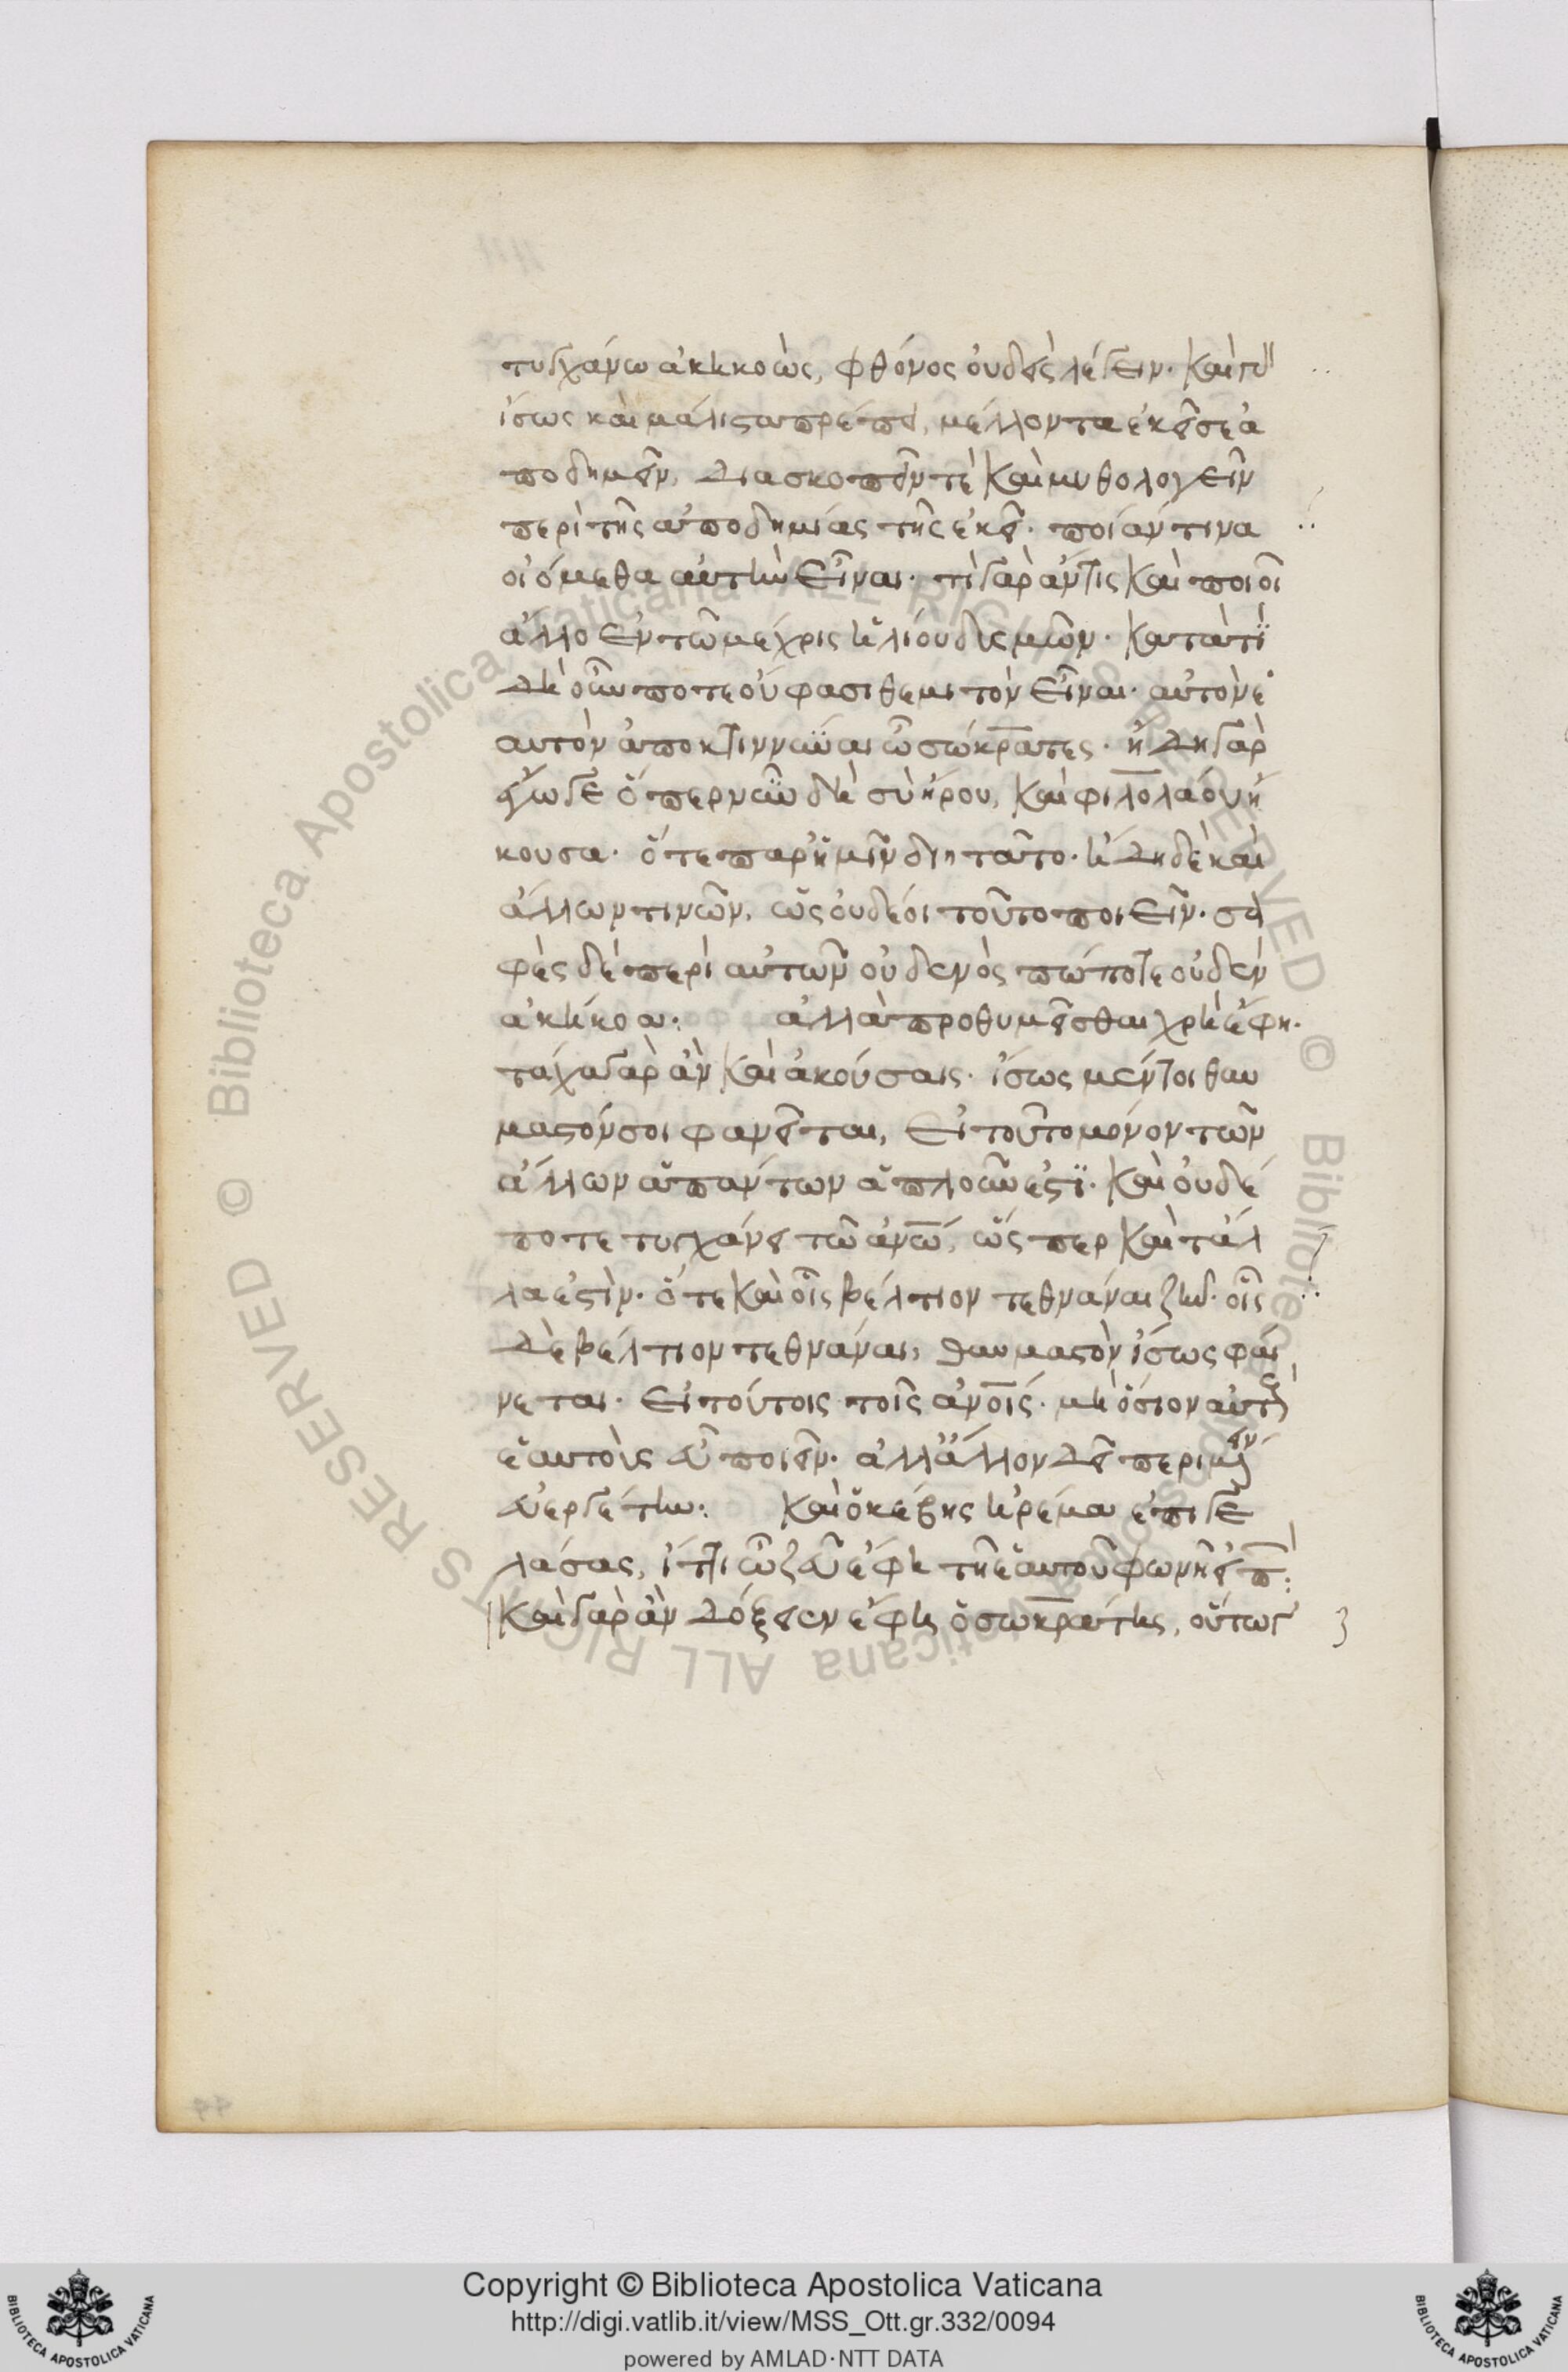 τυγχάνω ἀκηκοὼς, φθόνος οὐδεὶς λέγειν. καὶ γὰρ
ἴσως καὶ μάλιστα πρέπει, μέλλοντα ἐκεῖσε ἀ
ποδημεῖν, διασκοπεῖν τὲ καὶ μυθολογεῖν
περὶ τῆς ἀποδημίας τῆς ἐκεῖ. ποίαν τινα
οἰόμεθα αὐτὴν εἶναι. τί γὰρ ἄν τις καὶ ποιοῖ
ἄλλο ἐν τῶ μέχρις ἡλίου δυσμῶν. κατὰ τί
δὴ οὖν ποτε οὔ φασι θεμιτὸν εἶναι. αὐτὸν ἑ
αυτὸν ἀποκτιννύναι ὦ σώκρατες. ἤδη γὰρ
ἔγωγε ὅπερ νῦν δὴ σὺ ἤρου, καὶ φιλολάου ἤ
κουσα. ὅτε παρ' ἡμῖν διητᾶτο. ἤδη δὲ καὶ
ἄλλων τινῶν, ὡς οὐ δέοι τοῦτο ποιεῖν. σα
φὲς δὲ περὶ αὐτῶν οὐδενὸς πώποτε οὐδὲν
ἀκήκοα: ἀλλὰ προθυμεῖσθαι χρὴ ἔφη.
τάχα γὰρ ἂν καὶ ἀκούσαις. ἴσως μέντοι θαυ
μαστόν σοι φανεῖται, εἰ τοῦτο μόνον τῶν
ἄλλων ἁπάντων ἁπλοῦν ἐστι. καὶ οὐδέ
ποτε τυγχάνει τῶ ἀνω, ὥς περ καὶ τἄλ
λα ἐστὶν. ὅτε καὶ οἷς βέλτιον τεθνάναι ζῆν. οἷς
δὲ βέλτιον τεθνάναι, θαυμαστὸν ἴσως φαί
νεται. εἰ τούτοις τοῖς ἀνοις. μὴ ὅσιον αὐτοὺς
ἑαυτοὺς εὖ ποιεῖν. ἀλλ' ἄλλον δεῖ περιμένειν
εὐεργέτην: καὶ ὁ κέβης ἠρέμα ἐπιγε
λάσας, ἴττι ὦ ζεῦ ἔφη τῆ ἑαυτοῦ φωνῆ εἰπ:
καὶ γὰρ ἂν δόξειεν ἔφη ὁ σωκράτης, οὕτωγ
Copyright © Biblioteca Apostolica Vaticana
http://digi.vatlib.it/view/MSS_Ott.gr.332/0094
powered by AMLAD·NTT DATA
BIBLIOTECA APOSTOLICA VATICANA
BIBLIOTECA APOSTOLICA VATICANA